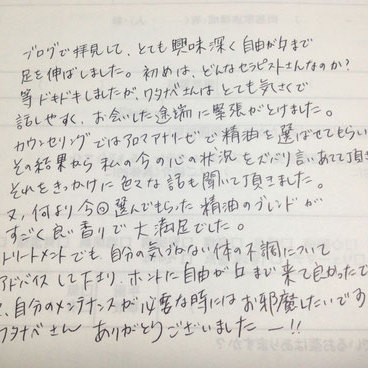 ブログで拝見して、とても興味深く自由が丘まで
足を伸ばしました。初めは、どんなセラピストさんなのか?
等ドキドキしましたが、ワタナベさんはとても気さくで
話しやすく、お会いした途端に緊張がとけました。
カウンセリングではアロマアナリーゼで精油を選ばせてもらい
その結果から私の今の心の状況をズバリ言いあてて頂き
それをきっかけに色々な話も聞いて頂きました。
又、何より今回選んでもらった精油のブレンドが
すごく良い香りで大満足でした。
トリートメントでも、自分の気づかない体の不調について
アドバイスして下さり、ホントに自由が丘まで来て良かったで
自分のメンテナンスが必要な時にはお邪魔したいです
ワタナベさん ありがとうございましたー!!